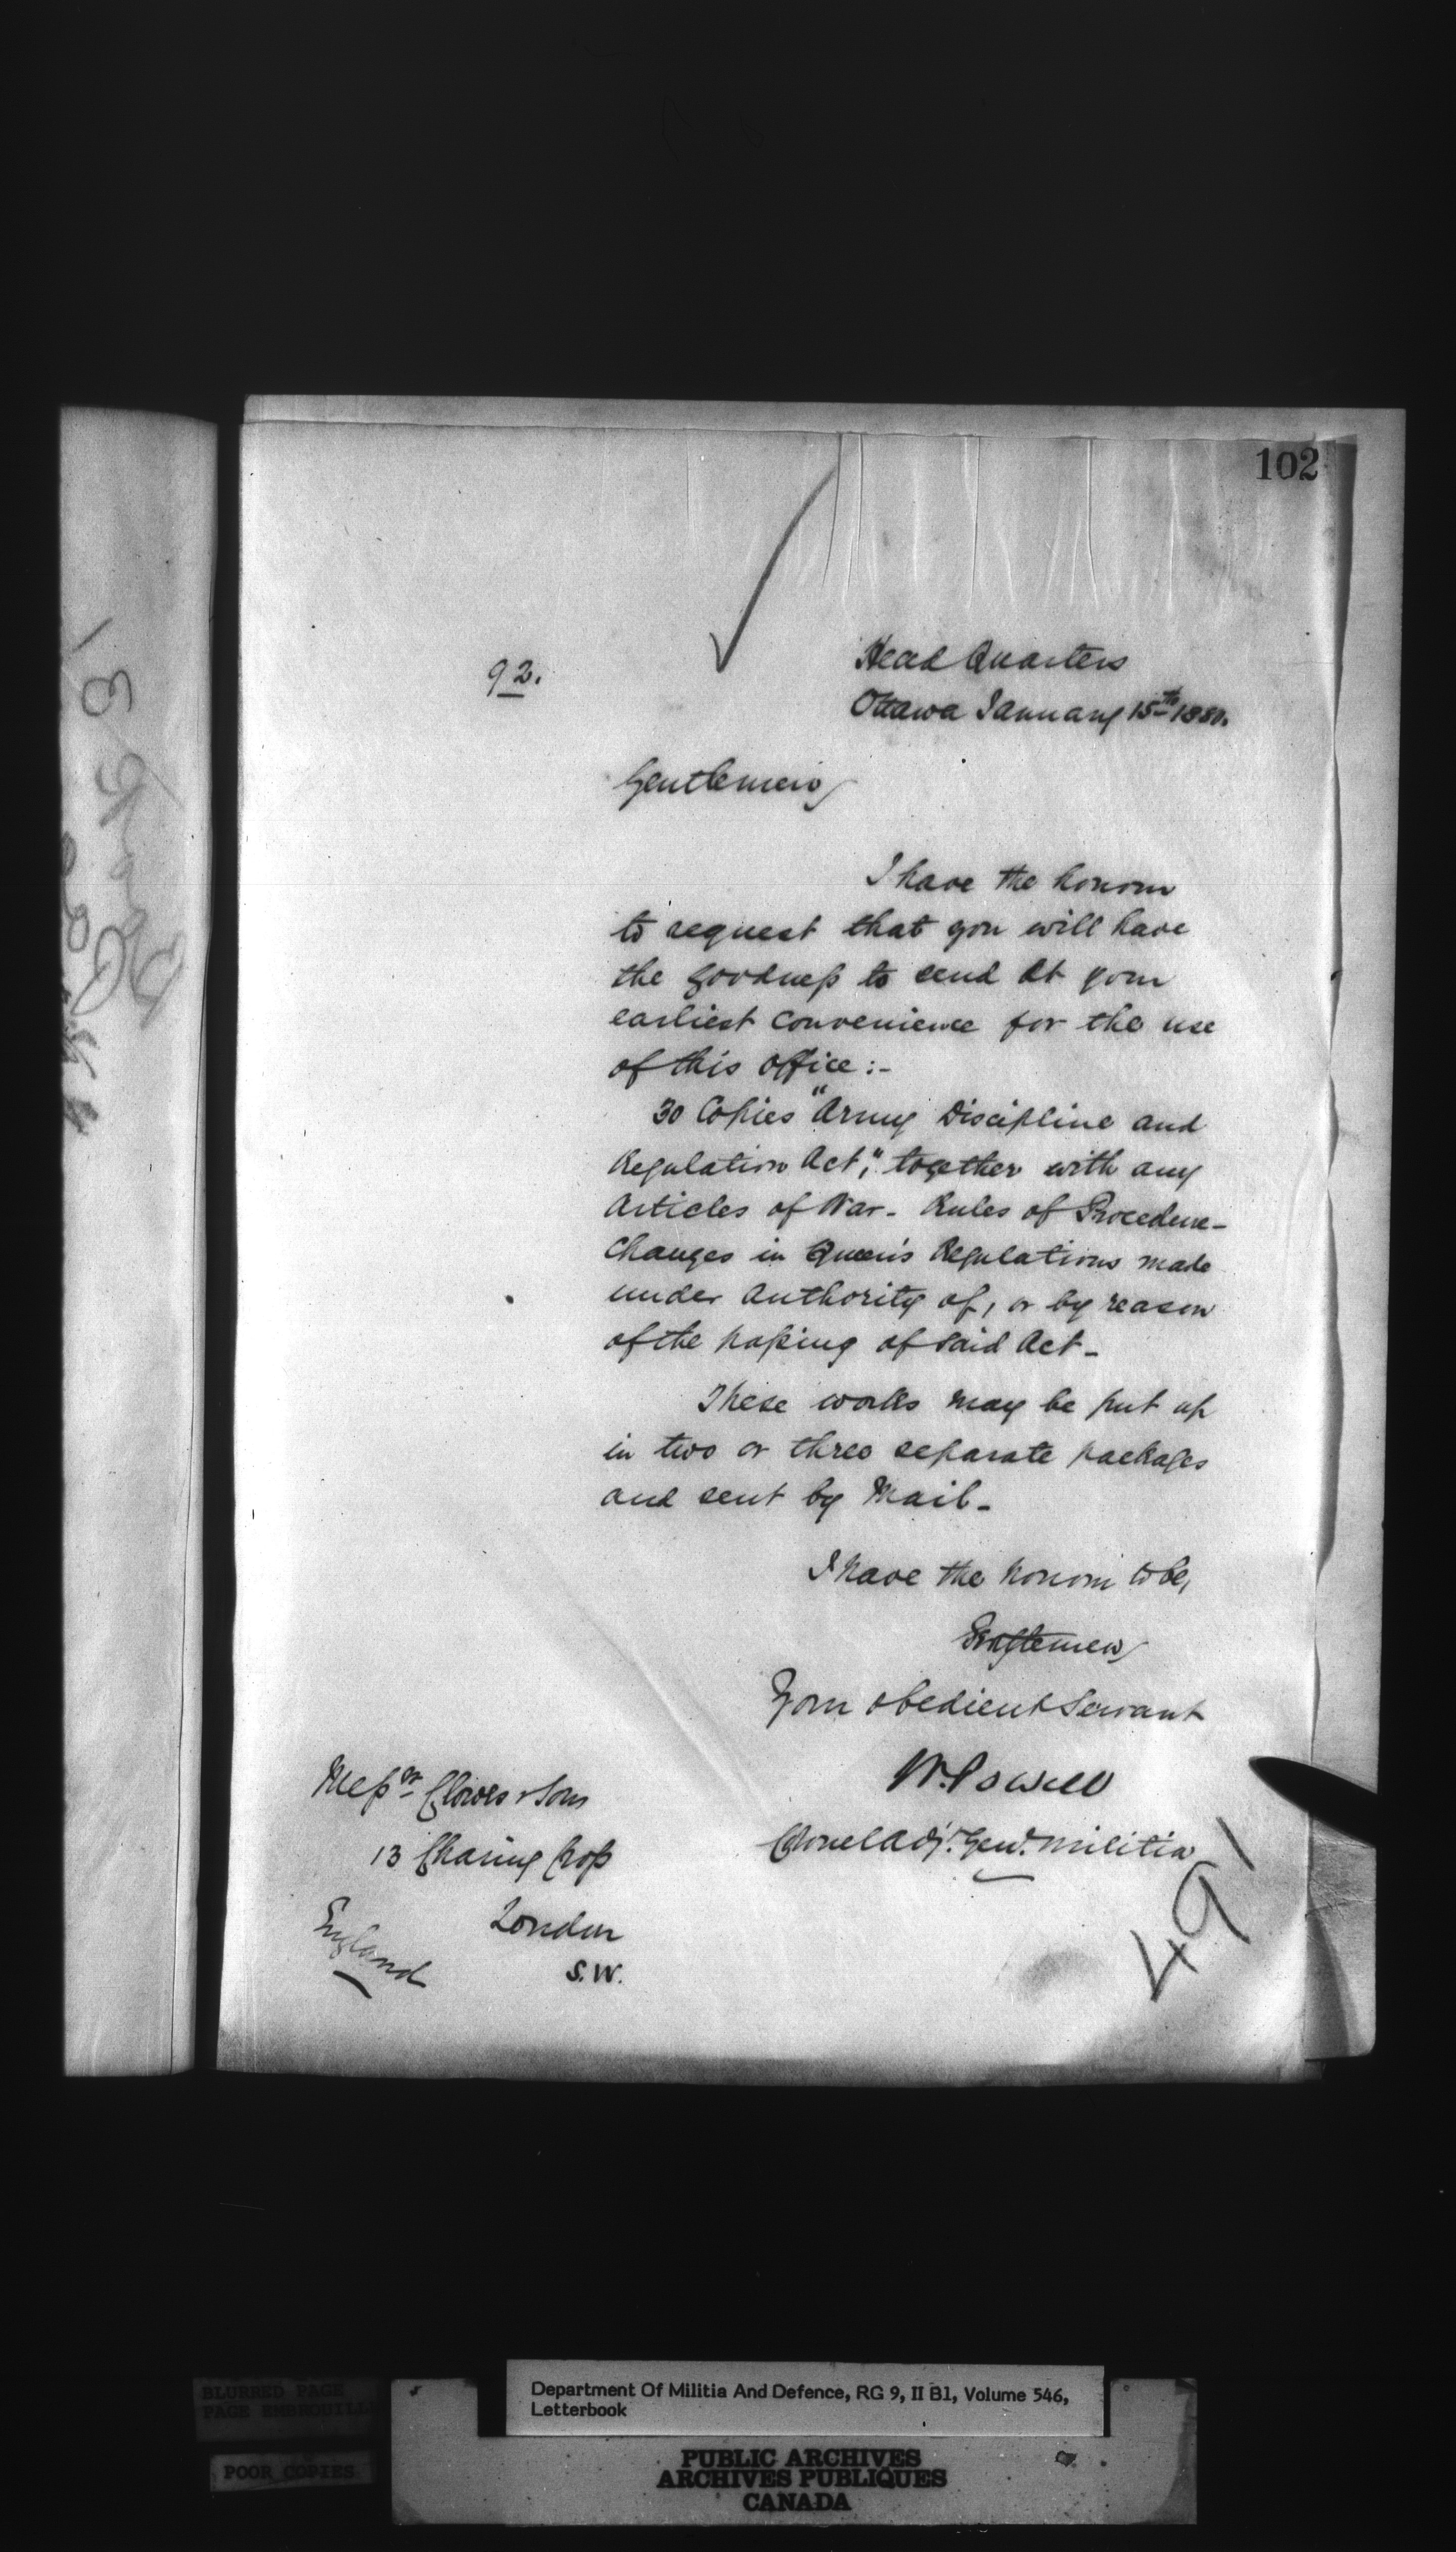 102
92.
Head Quarters
Ottawa January 15th 1880.
Gentlemen,
I have the honour
to request that you will have
the goodness to send at your
earliest convenience for the use
of this office:-
30 Copies "Army Discipline and
Regulation Act", together with any
Articles of War - Rules of Procedure -
Changes in Queen's Regulations made
under authority of, or by reason
of the passing of said Act -
These works may be put up
in two or three separate packages
and sent by Mail -
I have the honour to be,
Gentlemen,
Your obedient Servant
W. Powell
Colonel Adj. Genl. Militia
Messrs Clowes & Sons
13 Charing Cross
London
S.W.
England
491
BLURRED PAGE
PAGE EMBROUILLE
POOR COPIES
Department Of Militia And Defence, RG 9, II B1, Volume 546,
Letterbook
PUBLIC ARCHIVES
ARCHIVES PUBLIQUES
CANADA